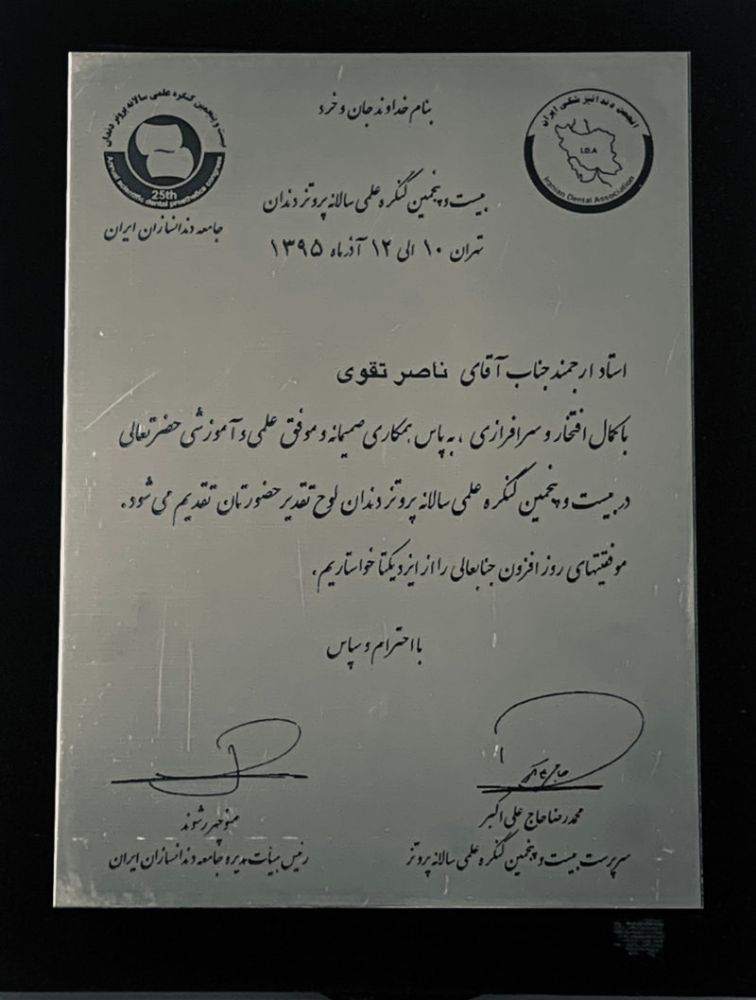 بنام خداوند جان و خرد
بیست و پنجمین کنگره علمی سالانه پروتز دندان
25th
Annual scientific dental prosthetics congress
جامعه دندانسازان ایران
انجمن دندانپزشکی ایران
I.D.A
Iranian Dental Association
بیست و پنجمین کنگره علمی سالانه پروتز دندان
تهران ۱۰ الی ۱۲ آذرماه ۱۳۹۵
استاد ارجمند جناب آقای ناصر تقوی
با کمال افتخار و سرافرازی ، به پاس همکاری صمیمانه و موفق علمی و آموزشی حضرتعالی
در بیست و پنجمین کنگره علمی سالانه پروتز دندان لوح تقدیر حضورتان تقدیم می شود .
موفقیتهای روز افزون جنابعالی را از ایزد یکتا خواستاریم .
با احترام و سپاس
محمدرضا حاج علی اکبر
سرپرست بیست و پنجمین کنگره علمی سالانه پروتز
منوچهر رشوند
رئیس هیأت مدیره جامعه دندانسازان ایران